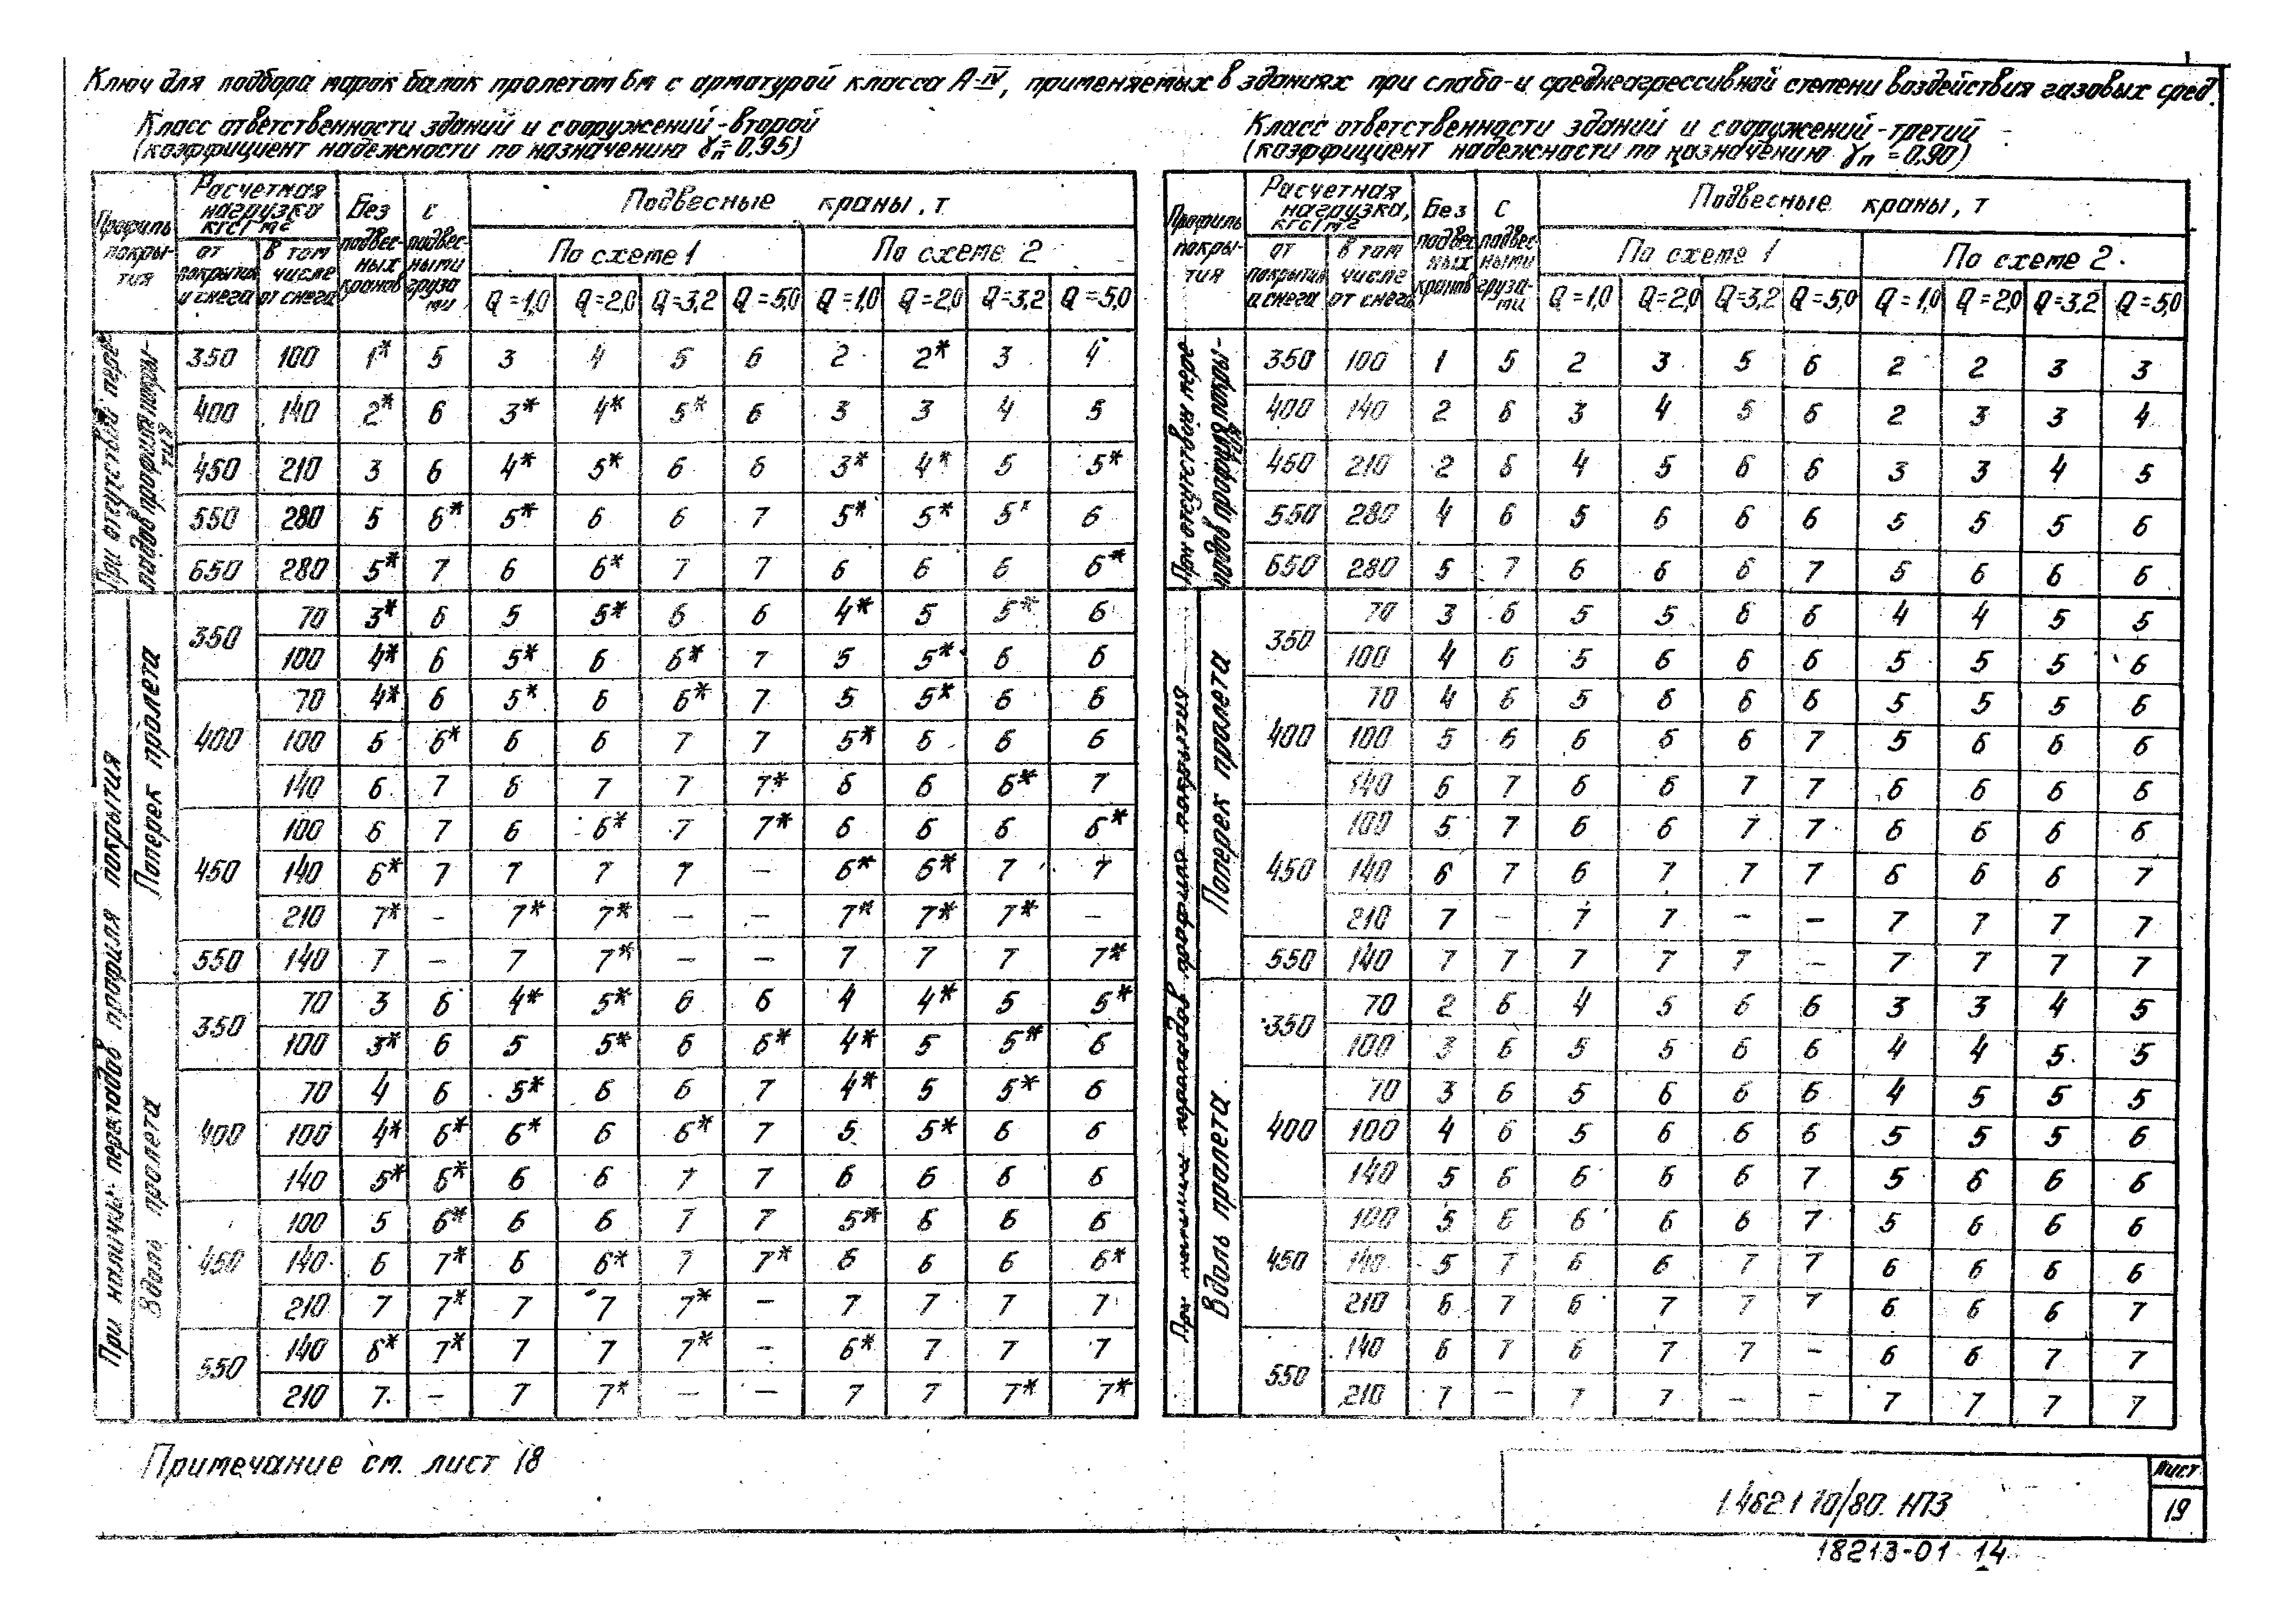 Ключ для подбора марок балок пролетом 6м с арматурой класса А-IV, применяемых в зданиях при слабо- и среднеагрессивной степени воздействия газовых сред.
Класс ответственности зданий и сооружений - второй
(коэффициент надежности по назначению γп = 0,95)
Профиль покрытия
Расчетная нагрузка кгс/м2
от покрытия и снега
в том числе от снега
Без подвесных кранов
с подвесными грузами
Подвесные краны, т
По схеме 1 По схеме 2
Q=1,0 Q=2,0 Q=3,2 Q=5,0 Q=1,0 Q=2,0 Q=3,2 Q=5,0
При отсутствии перепадов профиля покрытия
350 100 1* 5 3 4 5 6 2 2* 3 4
400 140 2* 6 3* 4* 5* 6 3 3 4 5
450 210 3 6 4* 5* 6 6 3* 4* 5 5*
550 280 5 6* 5* 6 6 7 5* 5* 5* 6
650 280 5* 7 6 6* 7 7 6 6 6 6*
При наличии перепадов профиля покрытия
Поперек пролета
350 70 3* 6 5 5* 6 6 4* 5 5* 6
100 4* 6 5* 6 6* 7 5 5* 6 6
400 70 4* 6 5* 6 6* 7 5 5* 6 6
100 5 6* 6 6 7 7 5* 6 6 6
140 6 7 6 7 7 7* 6 6 6* 7
450 100 6 7 6 6* 7 7* 6 6 6 6*
140 6* 7 7 7 7 – 6* 6* 7 7
210 7* – 7* 7* – – 7* 7* 7* –
550 140 7 – 7 7* – – 7 7 7 7*
Вдоль пролета
350 70 3 6 4* 5* 6 6 4 4* 5 5*
100 3* 6 5 5* 6 6* 4* 5 5* 6
400 70 4 6 5* 6 6 7 4* 5 5* 6
100 4* 6* 6* 6 6* 7 5 5* 6 6
140 5* 6* 6 6 7 7 6 6 6 6
450 100 5 6* 6 6 7 7 5* 6 6 6
140 6 7* 6 6* 7 7* 6 6 6 6*
210 7 7* 7 7 7* – 7 7 7 7
550 140 6* 7* 7 7 7* – 6* 7 7 7
210 7 – 7 7* – – 7 7 7* 7*
Класс ответственности зданий и сооружений - третий
(коэффициент надежности по назначению γп = 0,90)
Профиль покрытия
Расчетная нагрузка, кгс/м2
от покрытия и снега
в том числе от снега
Без подвесных кранов
С подвесными грузами
Подвесные краны, т
По схеме 1 По схеме 2.
Q=1,0 Q=2,0 Q=3,2 Q=5,0 Q=1,0 Q=2,0 Q=3,2 Q=5,0
При отсутствии перепадов профиля покрытия
350 100 1 5 2 3 5 6 2 2 3 3
400 140 2 6 3 4 5 6 2 3 3 4
450 210 2 6 4 5 6 6 3 3 4 5
550 280 4 6 5 6 6 6 5 5 5 6
650 280 5 7 6 6 6 7 5 6 6 6
При наличии перепадов профиля покрытия
Поперек пролета
350 70 3 6 5 5 6 6 4 4 5 5
100 4 6 5 6 6 6 5 5 5 6
400 70 4 6 5 6 6 6 5 5 5 6
100 5 6 6 6 6 7 5 6 6 6
140 6 7 6 6 7 7 6 6 6 6
450 100 5 7 6 6 7 7 6 6 6 6
140 6 7 6 7 7 7 6 6 6 7
210 7 – 7 7 – – 7 7 7 7
550 140 7 7 7 7 7 – 7 7 7 7
Вдоль пролета
350 70 2 6 4 5 6 6 3 3 4 5
100 3 6 5 5 6 6 4 4 5 5
400 70 3 6 5 6 6 6 4 5 5 5
100 4 6 5 6 6 6 5 5 5 6
140 5 6 6 6 6 7 5 6 6 6
450 100 5 6 6 6 6 7 5 6 6 6
140 5 7 6 6 7 7 6 6 6 6
210 6 7 6 7 7 7 6 6 6 7
550 140 6 7 6 7 7 – 6 6 7 7
210 7 – 7 7 – – 7 7 7 7
Примечание см. лист 18
1.462.1 10/80. НПЗ
Лист
19
18213-01 14